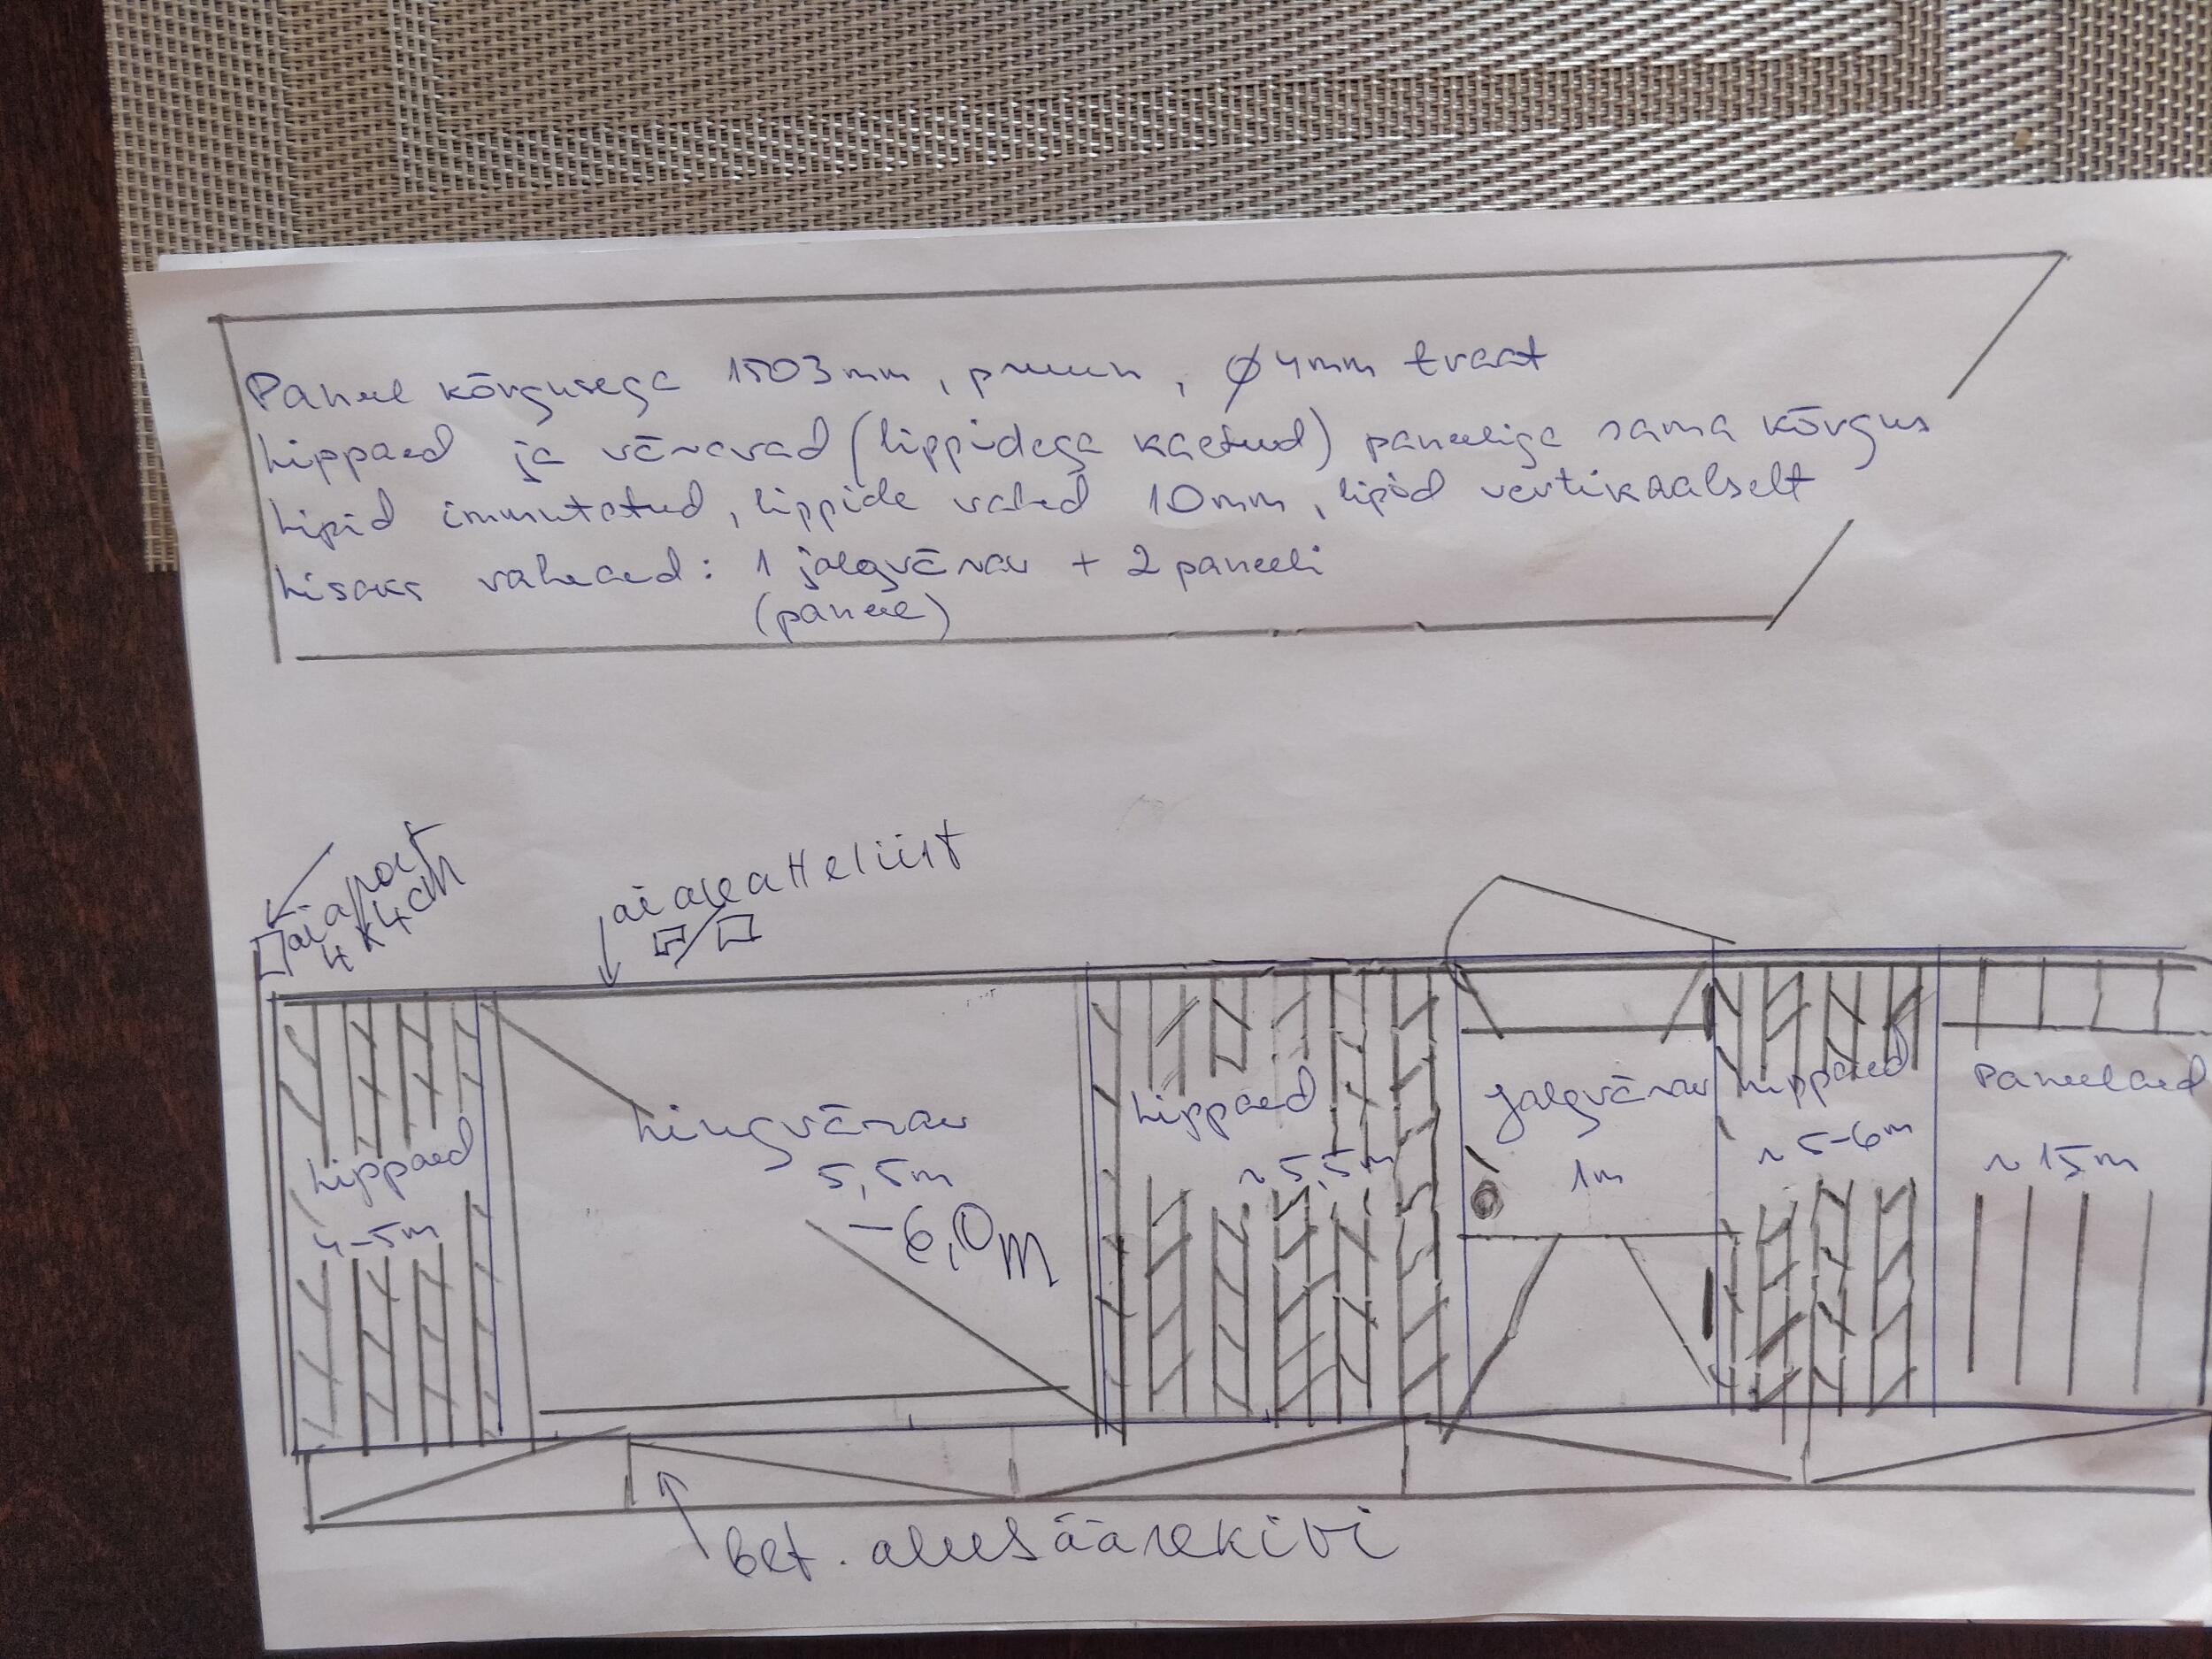 Paneel kõrgusega 1503mm, pruun, Ø 4mm traat
Lippaed ja väravad (lippidega kaetud) paneeliga sama kõrgus
Lipid immutatud, lippide vahed 10mm, lipid vertikaalselt
Lisaks vaheaed: 1 jalgvärav + 2 paneeli
(paneel)
aiapost
4x4cm
aia
liist
Lippaed
4-5m
Liugvärav
5,5m
-6,0m
Lippaed
~5,5m
Jalgvärav
1m
Lippaed
~5-6m
Paneelaed
~15m
bet. alusäärekivi